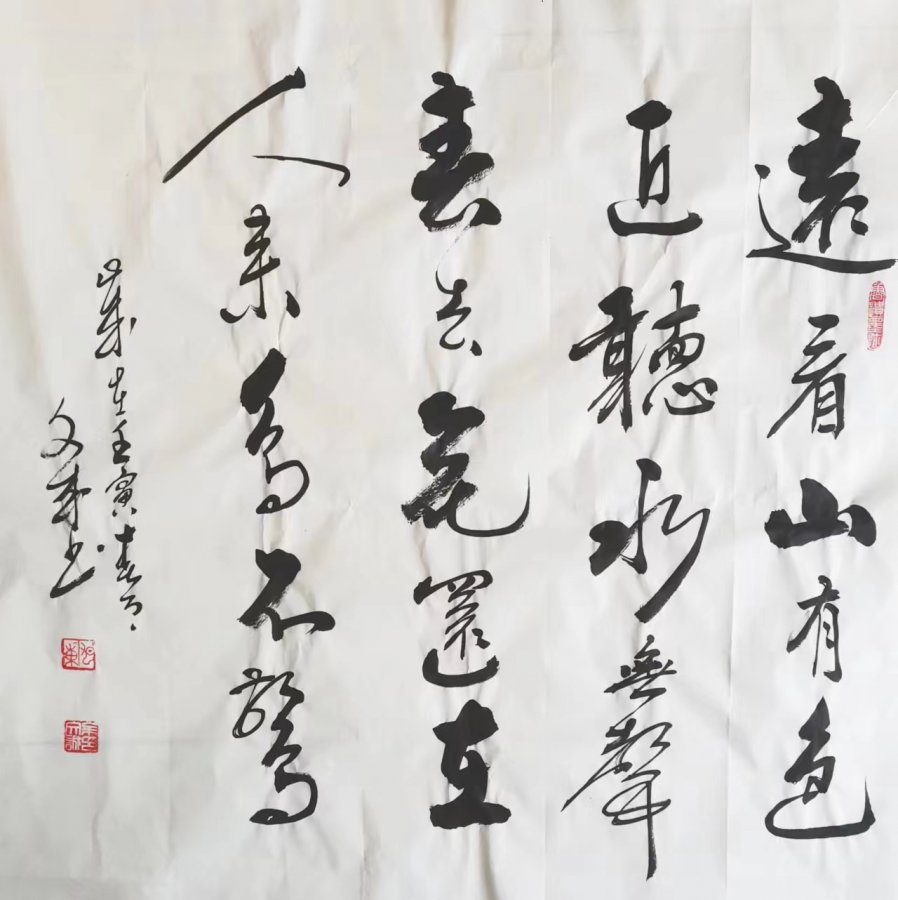 遠看山有色
近聽水無聲
春去花還在
人來鳥不驚
歲在壬寅春月
文书